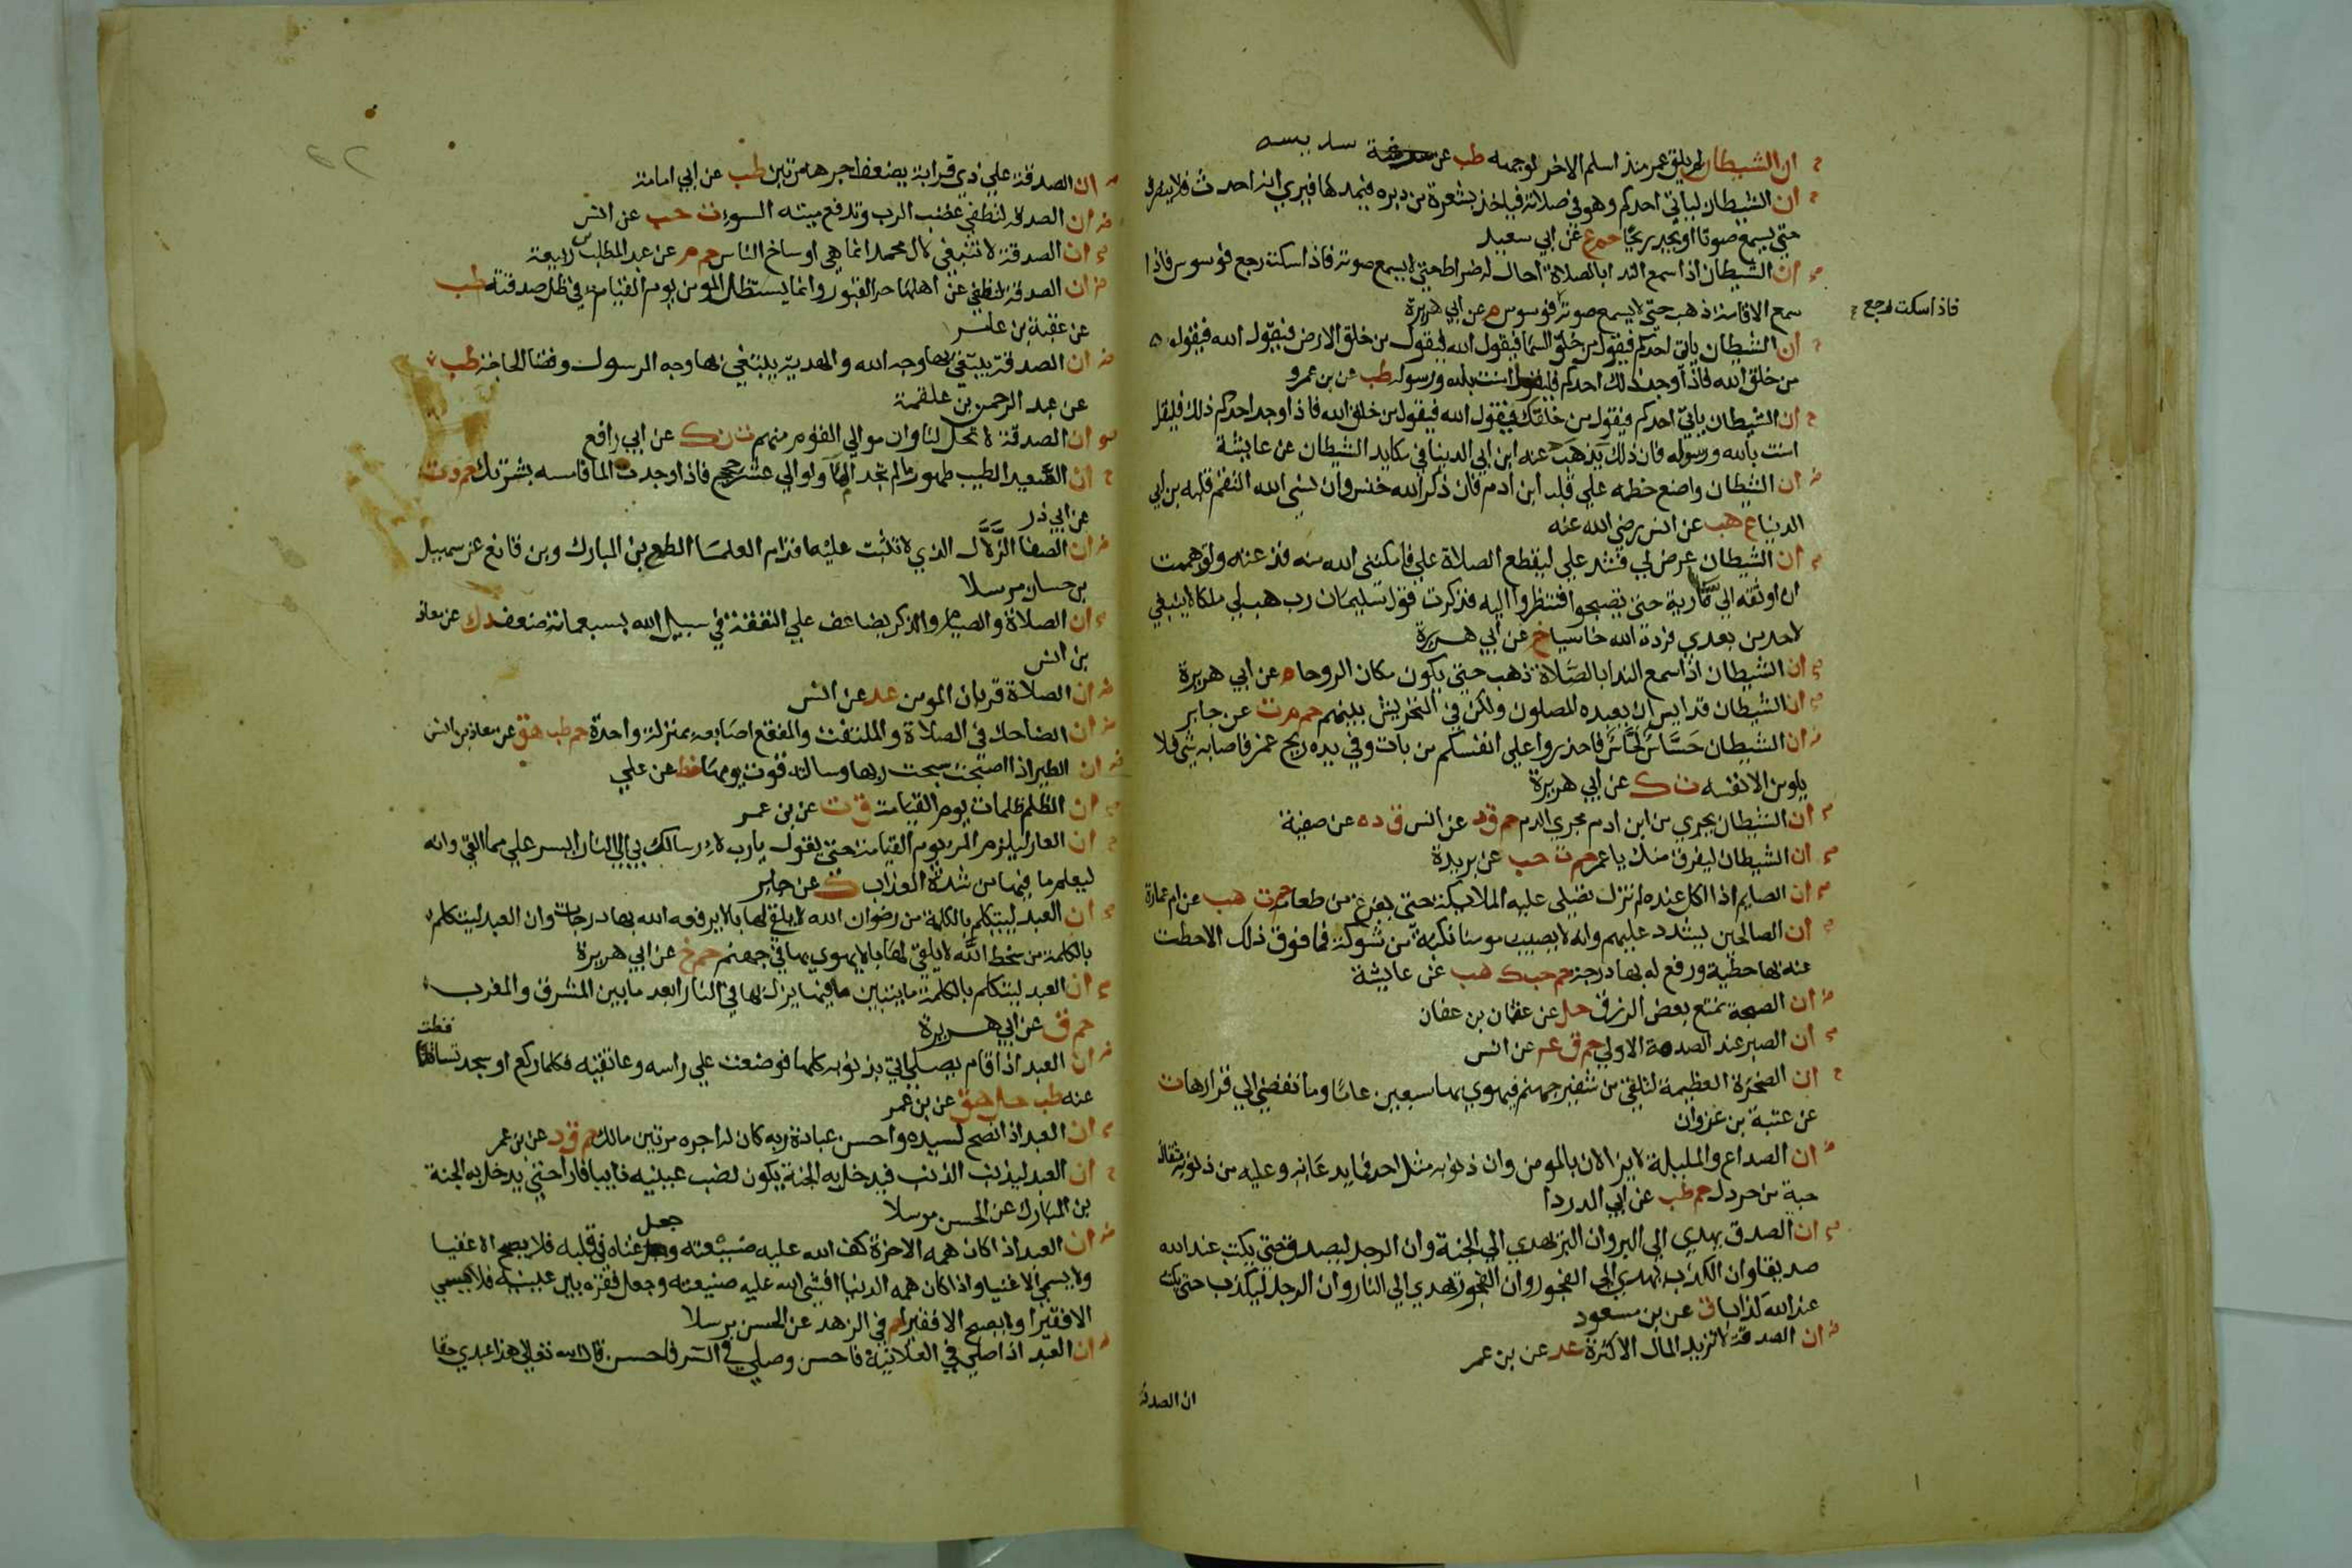 ان الشيطان لم يلق عمر منذ اسلم الاخر لوجهه طب عن سديسه
ان الشيطان لياتي احدكم وهو في صلاته فياخذ بشعرة من دبره فيمدها فيري انه احدث فلا ينصرف
حتي يسمع صوتا او يجد ريحا حم ع عن ابي سعيد
ان الشيطان اذا سمع الندا بالصلاة احال له ضراط حتي لا يسمع صوته فاذا سكت رجع فوسوس فاذا
سمع الاقامة ذهب حتي لا يسمع صوته فوسوس م عن ابي هريرة
فاذا سكت رجع
ان الشيطان ياتي احدكم فيقول من خلق السما فيقول الله فيقول من خلق الارض فيقول الله فيقول
من خلق الله فاذا وجد ذلك احدكم فليقل امنت بالله ورسوله طب عن بن عمرو
ان الشيطان ياتي احدكم فيقول من خلقك فيقول الله فيقول من خلق الله فاذا وجد احدكم ذلك فليقل
امنت بالله ورسوله فان ذلك يذهب عنه ابن ابي الدنيا في مكايد الشيطان عن عايشة
ان الشيطان واضع خطمه علي قلب ابن ادم فان ذكر الله خنس وان نسي الله التقم قلبه بن ابي
الدنيا ع هب عن انس رضي الله عنه
ان الشيطان عرض لي فشد علي ليقطع الصلاة علي فامكنني الله منه فذعته ولو هممت
ان اوثقه الي سارية حتي تصبحوا فتنظروا اليه فذكرت قول سليمان رب هب لي ملكا لا ينبغي
لاحد من بعدي فرده الله خاسيا خ عن ابي هريرة
ان الشيطان اذا سمع الندا بالصلاة ذهب حتي يكون مكان الروحا م عن ابي هريرة
ان الشيطان قد ايس ان يعبده المصلون ولكن في التحريش بينهم حم م ت عن جابر
ان الشيطان حساس لحاس فاحذروا علي انفسكم من بات وفي يده ريح غمر فاصابه شي فلا
يلومن الا نفسه ت ك عن ابي هريرة
ان الشيطان يجري من ابن ادم مجري الدم حم ق د عن انس ق د ه عن صفية
ان الشيطان ليفرق منك يا عمر حم ت حب عن بريدة
ان الصايم اذا اكل عنده لم تزل تصلي عليه الملايكة حتي يفرغ من طعامه حم ت هب عن ام عمارة
ان الصالحين يشدد عليهم وانه لا يصيب مومنا نكبة من شوكة فما فوق ذلك الا حطت
عنه بها خطية ورفع له بها درجة حم حب ك هب عن عايشة
ان الصبحة تمنع بعض الرزق حل عن عثمان بن عفان
ان الصبر عند الصدمة الاولي حم ق ع عن انس
ان الصخرة العظيمة لتلقي من شفير جهنم فيهوي بها سبعين عاما وما تفضي الي قرارها ت
عن عتبة بن غزوان
ان الصداع والمليلة لا يزالان بالمومن وان ذنوبه مثل احد فما يدعانه وعليه من ذنوبه مثقال
حبة من خردل حم طب عن ابي الدردا
ان الصدق يهدي الي البر وان البر يهدي الي الجنة وان الرجل ليصدق حتي يكتب عند الله
صديقا وان الكذب يهدي الي الفجور وان الفجور يهدي الي النار وان الرجل ليكذب حتي يكتب
عند الله كذابا ق عن بن مسعود
ان الصدقة لا تزيد المال الا كثرة عد عن بن عمر
ان الصدقة
ان الصدقة علي ذي قرابة يضعف اجرها مرتين طب عن ابي امامة
ان الصدقة لتطفي غضب الرب وتدفع ميتة السوء ت حب عن انس
ان الصدقة لا تنبغي لال محمد انما هي اوساخ الناس حم م عن عبد المطلب بن ربيعة
ان الصدقة لتطفي عن اهلها حر القبور وانما يستظل المومن يوم القيامة في ظل صدقته طب
عن عقبة بن عامر
ان الصدقة يبتغي بها وجه الله والهدية يبتغي بها وجه الرسول وقضا الحاجة طب
عن عبد الرحمن بن علقمة
ان الصدقة لا تحل لنا وان موالي القوم منهم ت ن ك عن ابي رافع
ان الصعيد الطيب طهور ما لم تجد الما ولو الي عشر حجج فاذا وجدت الما فامسه بشرتك حم د ت
عن ابي ذر
ان الصفا الزلال الذي لا تثبت عليه اقدام العلما الطمع بن المبارك وبن قانع عن سهيل
بن حسان مرسلا
ان الصلاة والصيام والذكر يضاعف علي النفقة في سبيل الله بسبعماية ضعف د ك عن معاذ
بن انس
ان الصلاة قربان المومن عد عن انس
ان الضاحك في الصلاة والملتفت والمفقع اصابعه بمنزلة واحدة حم طب هق عن معاذ بن انس
ان الطير اذا اصبحت سبحت ربها وسالته قوت يومها خط عن علي
ان الظلم ظلمات يوم القيامة ق ت عن بن عمر
ان العار ليلزم المر يوم القيامة حتي يقول يارب لارسالك بي الي النار ايسر علي مما القي وانه
ليعلم ما فيها من شدة العذاب ك عن جابر
ان العبد ليتكلم بالكلمة من رضوان الله لا يلقي لها بالا يرفعه الله بها درجات وان العبد ليتكلم
بالكلمة من سخط الله لا يلقي لها بالا يهوي بها في جهنم حم خ عن ابي هريرة
ان العبد ليتكلم بالكلمة ما يتبين ما فيها يزل بها في النار ابعد ما بين المشرق والمغرب
حم ق عن ابي هريرة
ان العبد اذا قام يصلي اتي بذنوبه كلها فوضعت علي راسه وعاتقيه فكلما ركع او سجد تساقطت
عنه طب حل هق عن بن عمر
ان العبد اذا نصح لسيده واحسن عبادة ربه كان له اجره مرتين مالك حم ق د عن بن عمر
ان العبد ليذنب الذنب فيدخل به الجنة يكون نصب عينيه تايبا فارا حتي يدخل به الجنة
بن المبارك عن الحسن مرسلا
ان العبد اذا كان همه الاخرة كف الله عليه ضيعته وجعل غناه في قلبه فلا يصبح الا غنيا
ولا يمسي الا غنيا واذا كان همه الدنيا افشي الله عليه ضيعته وجعل فقره بين عينيه فلا يمسي
الا فقيرا ولا يصبح الا فقيرا حم في الزهد عن الحسن مرسلا
ان العبد اذا صلي في العلانية فاحسن وصلي في السر فاحسن قال الله تعالي هذا عبدي حقا